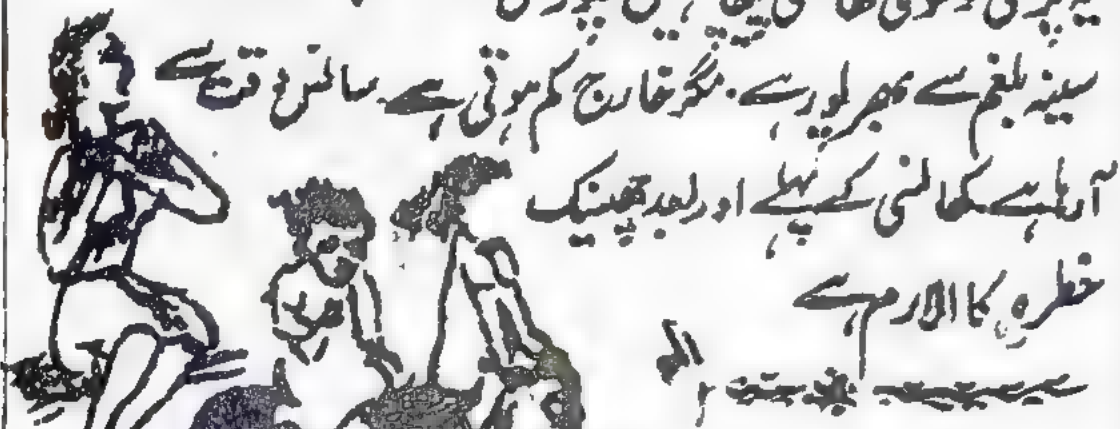 سینہ بلغم سے بھر پور ہے۔ مگر خارج کم ہوتی ہے۔ سانس وقت سے
آ رہا ہے کھانسی کے پہلے اور بعد چھینک
خطرہ کا الارم ہے